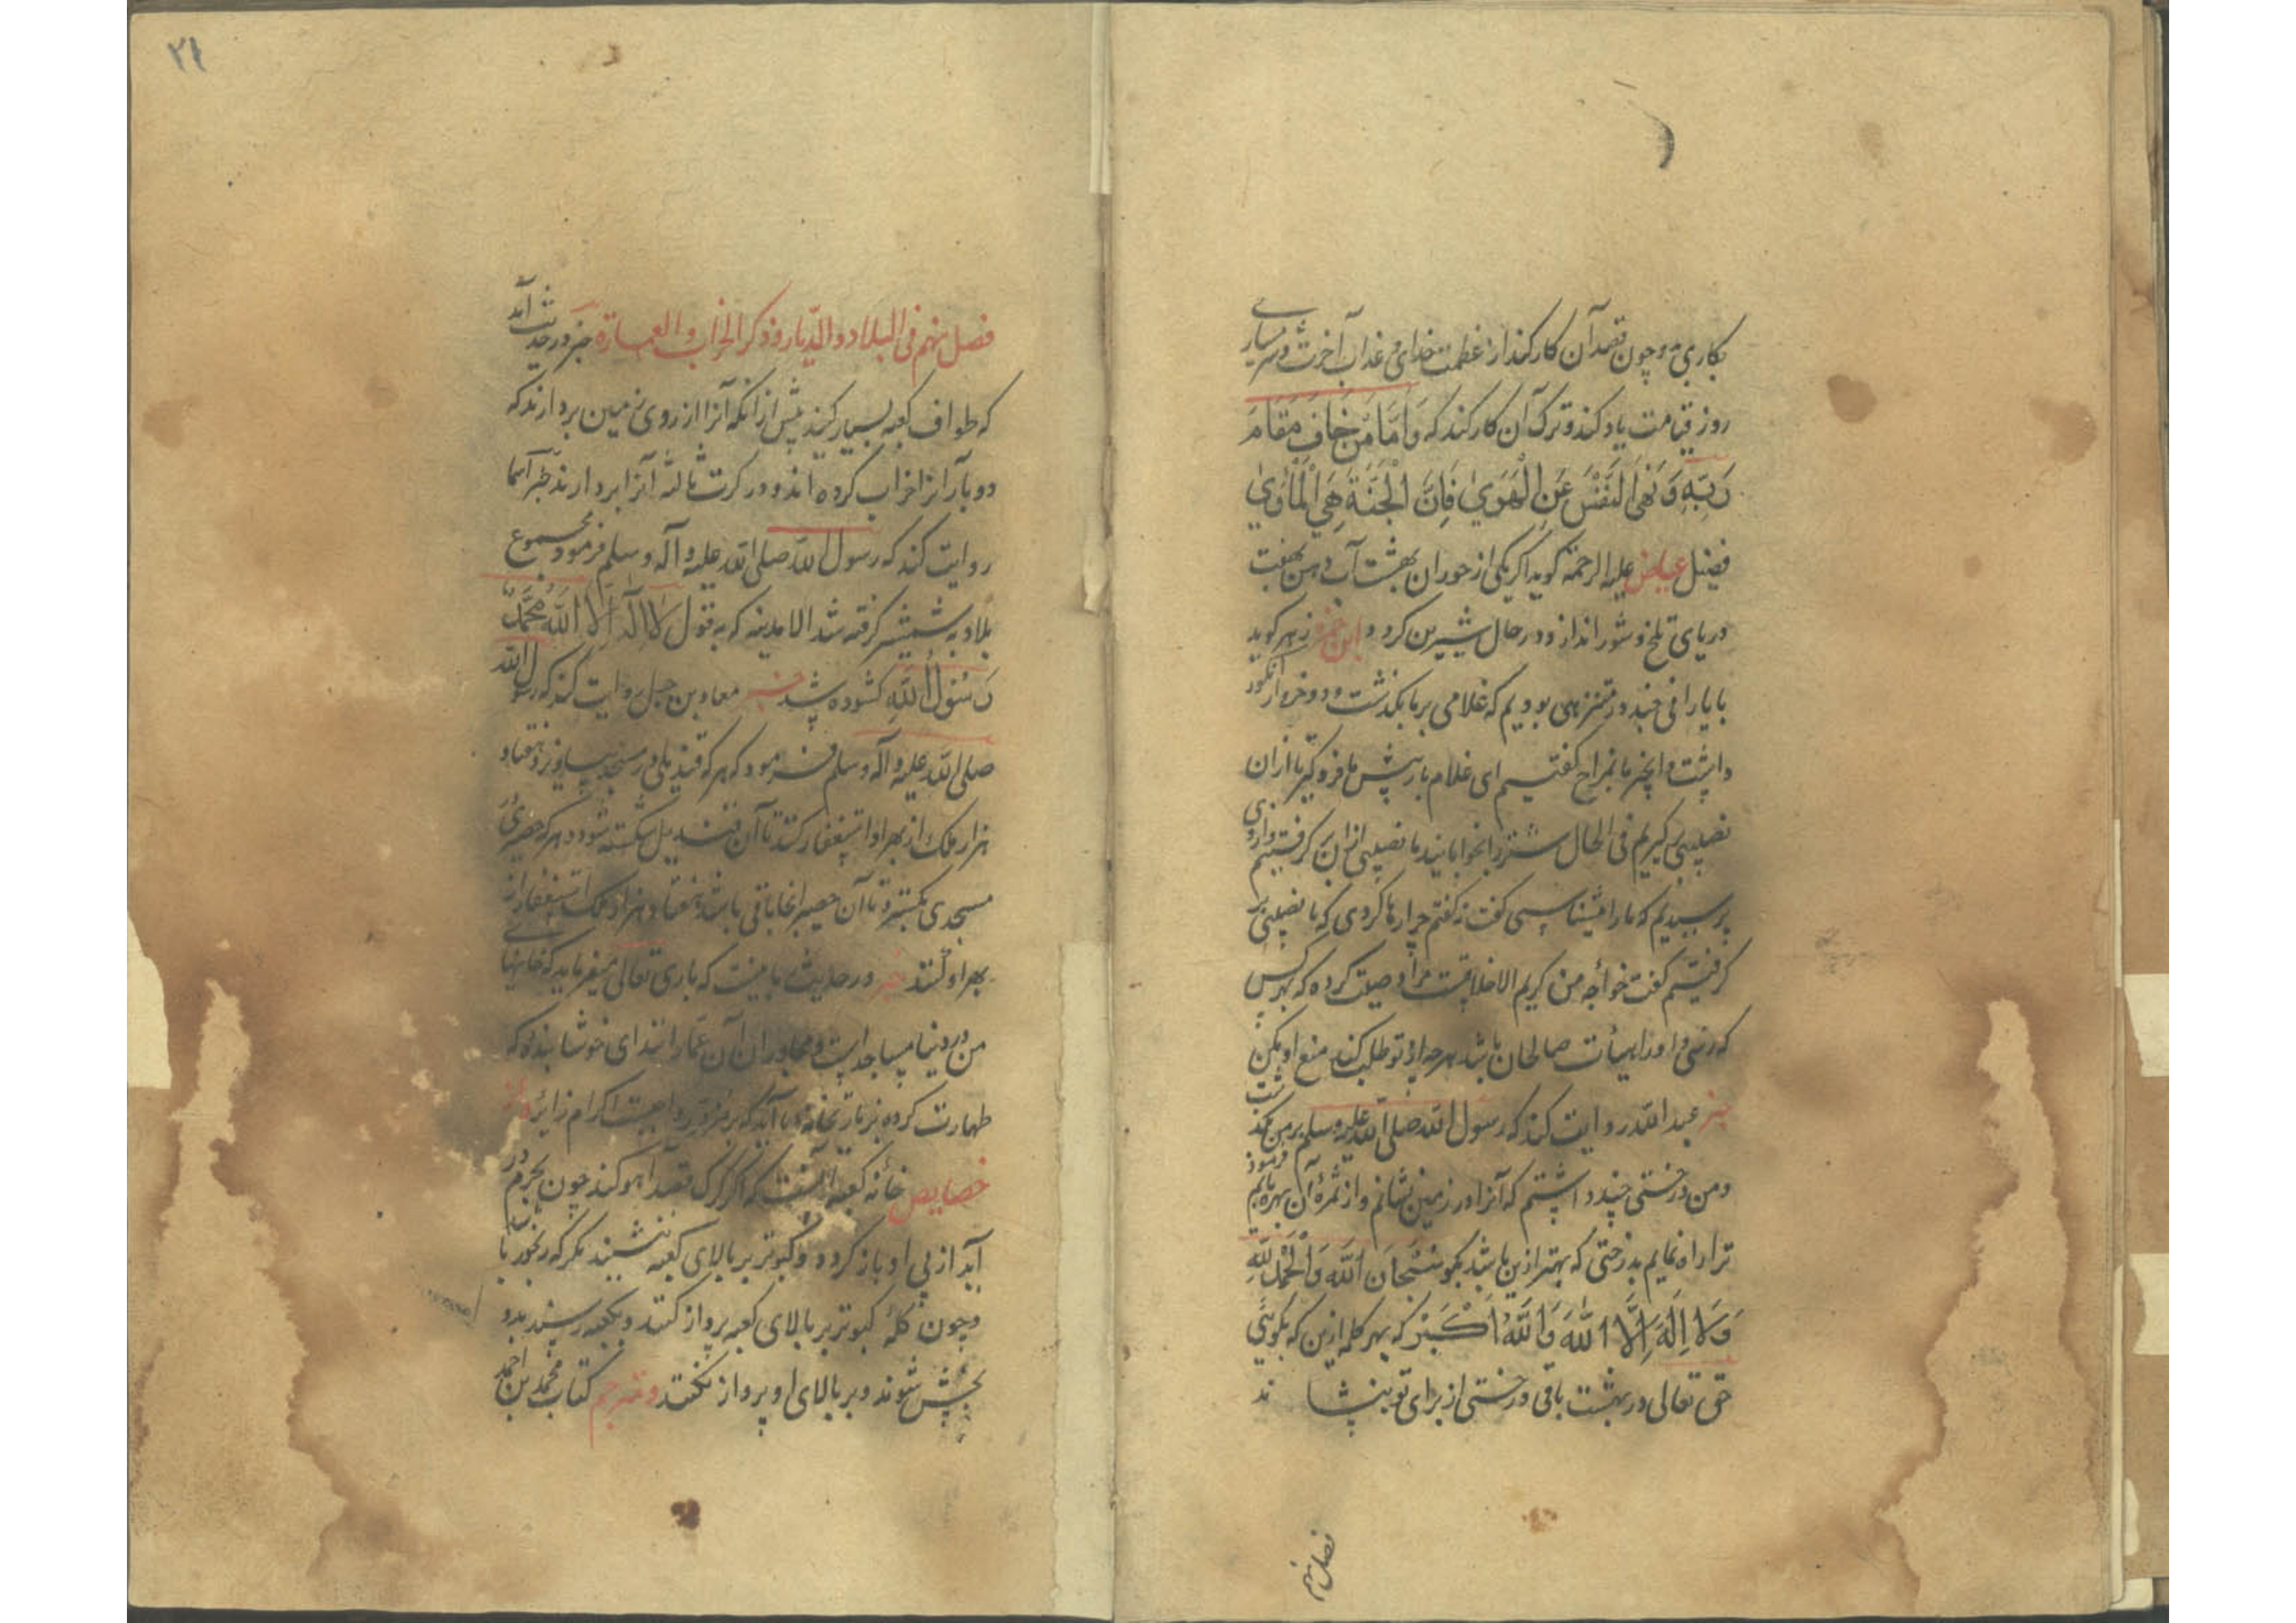 بکاری و چون قصد آن کار کند از عظمت خدای و عذاب آخرت و شرمساری
روز قیامت یاد کند و ترک آن کار کند که وَاَمَّا مَنْ خَافَ مَقَامَ
رَبِّهِ وَنَهَی النَّفْسَ عَنِ الْهَوَیٰ فَاِنَّ الْجَنَّةَ هِیَ الْمَاْوَیٰ
فضیل عیاض علیه الرحمة کوید اکر یکی از حوران بهشت آب دهن بهفت
دریای تلخ و شور اندازد در حال شیرین کردد و ابن زهر کوید
با یارانی چند در متنزهی بودیم که غلامی بر ما بکذشت و دو خروار انکور
داشت و انجیر ما بمزاح کفتیم ای غلام بار پیش ما فرو کیر تا ازان
نصیبی بر کیریم فی الحال شتر را بخوابانید ما نصیبی ازان بر کرفتیم و از وی
پرسیدیم که ما را میشناسی کفت نه کفتم چرا رها کردی که ما نصیبی بر
کرفتیم کفت خواجه من کریم الاخلاقست مرا وصیت کرده که هر کس
که رسی و او را هیأت صالحان باشد هرچه از تو طلب کند منع او مکن
خبر عبد الله روایت کند که رسول الله صلی الله علیه وسلم بر من بکذشت
و من درختی چند داشتم که آنرا در زمین نشانم و از ثمرهٔ آن بهره یابم فرمود
ترا راه نمایم بدرختی که بهتر ازین باشد بکو سُبْحَانَ اللَّهِ وَالْحَمْدُ لِلَّهِ
وَلَا اِلَهَ اِلَّا اللَّهُ وَاللَّهُ اَکْبَرُ که بهر کلمه ازین که بکویی
حق تعالی در بهشت باقی درختی از برای تو بنشاند
فصل نهم
۲۱
فصل نهم فی البلاد والدّیار و ذکر الخراب والعمارة خبر در حدیث آمد
که طواف کعبه بسیار کنید پیش از انکه آنرا از روی زمین بردارند که
دو بار آنرا خراب کرده اند و در کرت ثالثه آنرا بردارند خبر اسما
روایت کند که رسول الله صلی الله علیه و آله وسلم فرمود مجموع
بلاد به شمشیر کرفته شد الا مدینه که به قول لَا اِلَهَ اِلَّا اللَّهُ مُحَمَّدٌ
رَسُولُ اللَّهِ کشوده شد خبر معاذ بن جبل روایت کند که رسول الله
صلی الله علیه و آله وسلم فرمود که هر که قندیلی در مسجد بیاویزد هفتاد
هزار ملک از بهر او استغفار کنند تا آن قندیل شکسته شود و هر که حصیری
مسجدی بکسترد تا آن حصیر انجا باقی باشد هفتاد هزار ملک استغفار از
بهر او کنند خبر در حدیث ما هست که باری تعالی میفرماید که خانهای
من در دنیا مساجد است و مجاوران آن عمار انند ای خوشا بنده که
طهارت کرده بزیارت خانه ما آید که بر مزور واجبست اکرام زایر و از
خصایص خانه کعبه آنست که اکر کرک قصد آهو کند چون بحرم در
آید از پی او باز کردد و کبوتر بر بالای کعبه ننشیند مکر که رنجور باشد
و چون کلهٔ کبوتر بر بالای کعبه پرواز کنند و بکعبه رسند بدو
بخش شوند و بر بالای او پرواز نکنند و مترجم کتاب محمد بن احمد